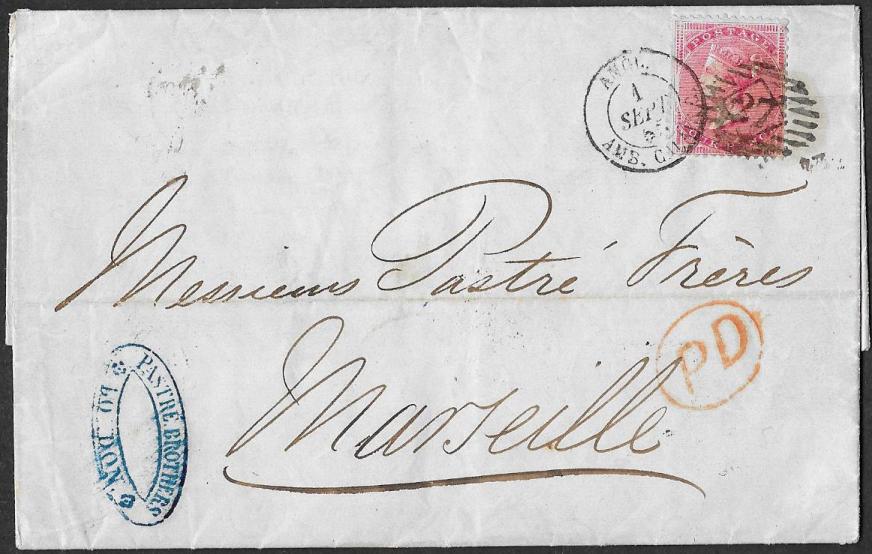 POSTAGE
ANGL.
1
SEPT
AMB. CALAIS
Messieurs Pastré Frères
PD
Marseille
PASTRE BROTHERS